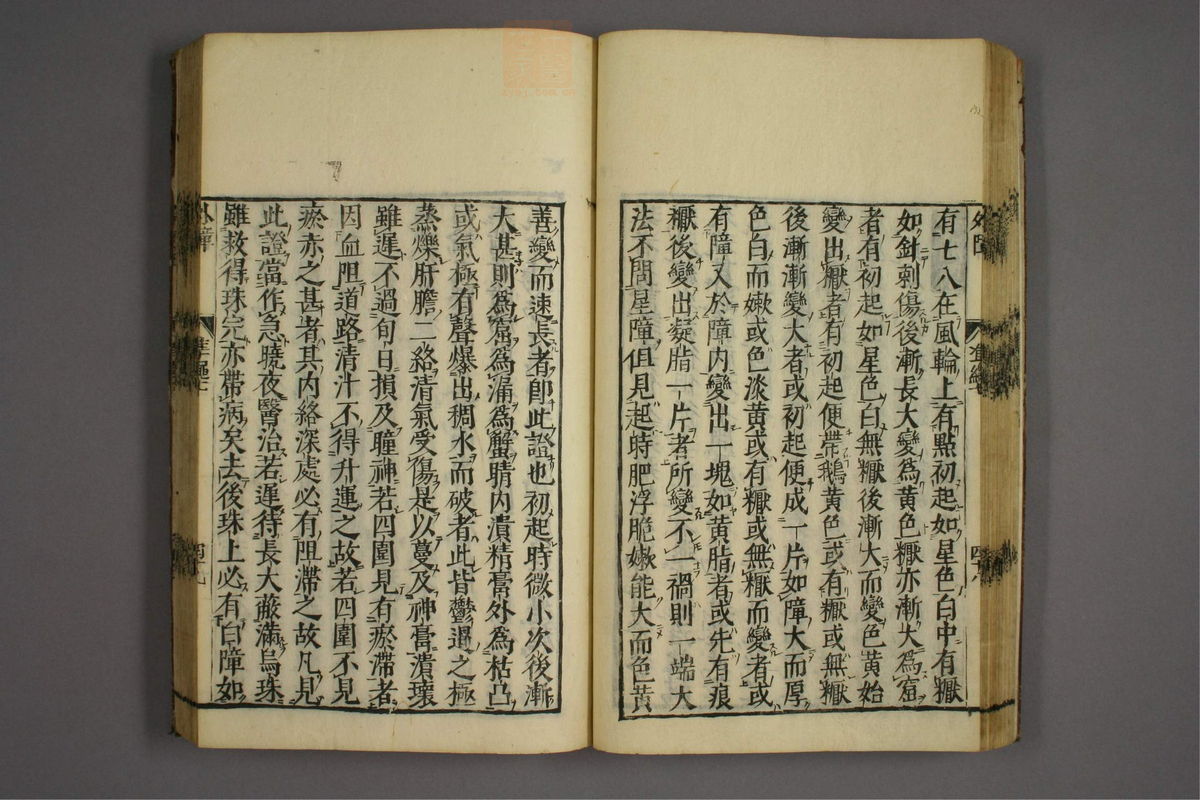 有七八在風輪上有點初起如星色白中有黶
如針刺傷後漸長大變為黃色黶亦漸大為窟
者有初起如星色白無黶後漸大而變色黃始
變出黶者有初起便帶鵝黃色或有黶或無黶
後漸漸變大者或初起便成一片如障大而厚
色白而嫩或色淡黃或有黶或無黶而變者或
有障又於障內變出一塊如黃脂者或先有痕
黶後變出凝脂一片者所變不一禍則一端大
法不問星障但見起時肥浮脆嫩能大而色黃
善變而速長者即此證也初起時微小次後漸
大甚則為窟為漏為蟹睛內潰精膏外為枯凸
或氣極有聲爆出稠水而破者此皆鬱遏之極
蒸爍肝膽二絡清氣受傷是以蔓及神膏潰壞
雖遲不過旬日損及瞳神若四圍見有瘀滯者
因血阻道路清汁不得升運之故若四圍不見
瘀赤之甚者其內絡深處必有阻滯之故凡見
此證當作急曉夜醫治若遲待長大蔽滿烏珠
雖救得珠完亦帶病矣去後珠上必有白障如
外障
四十九